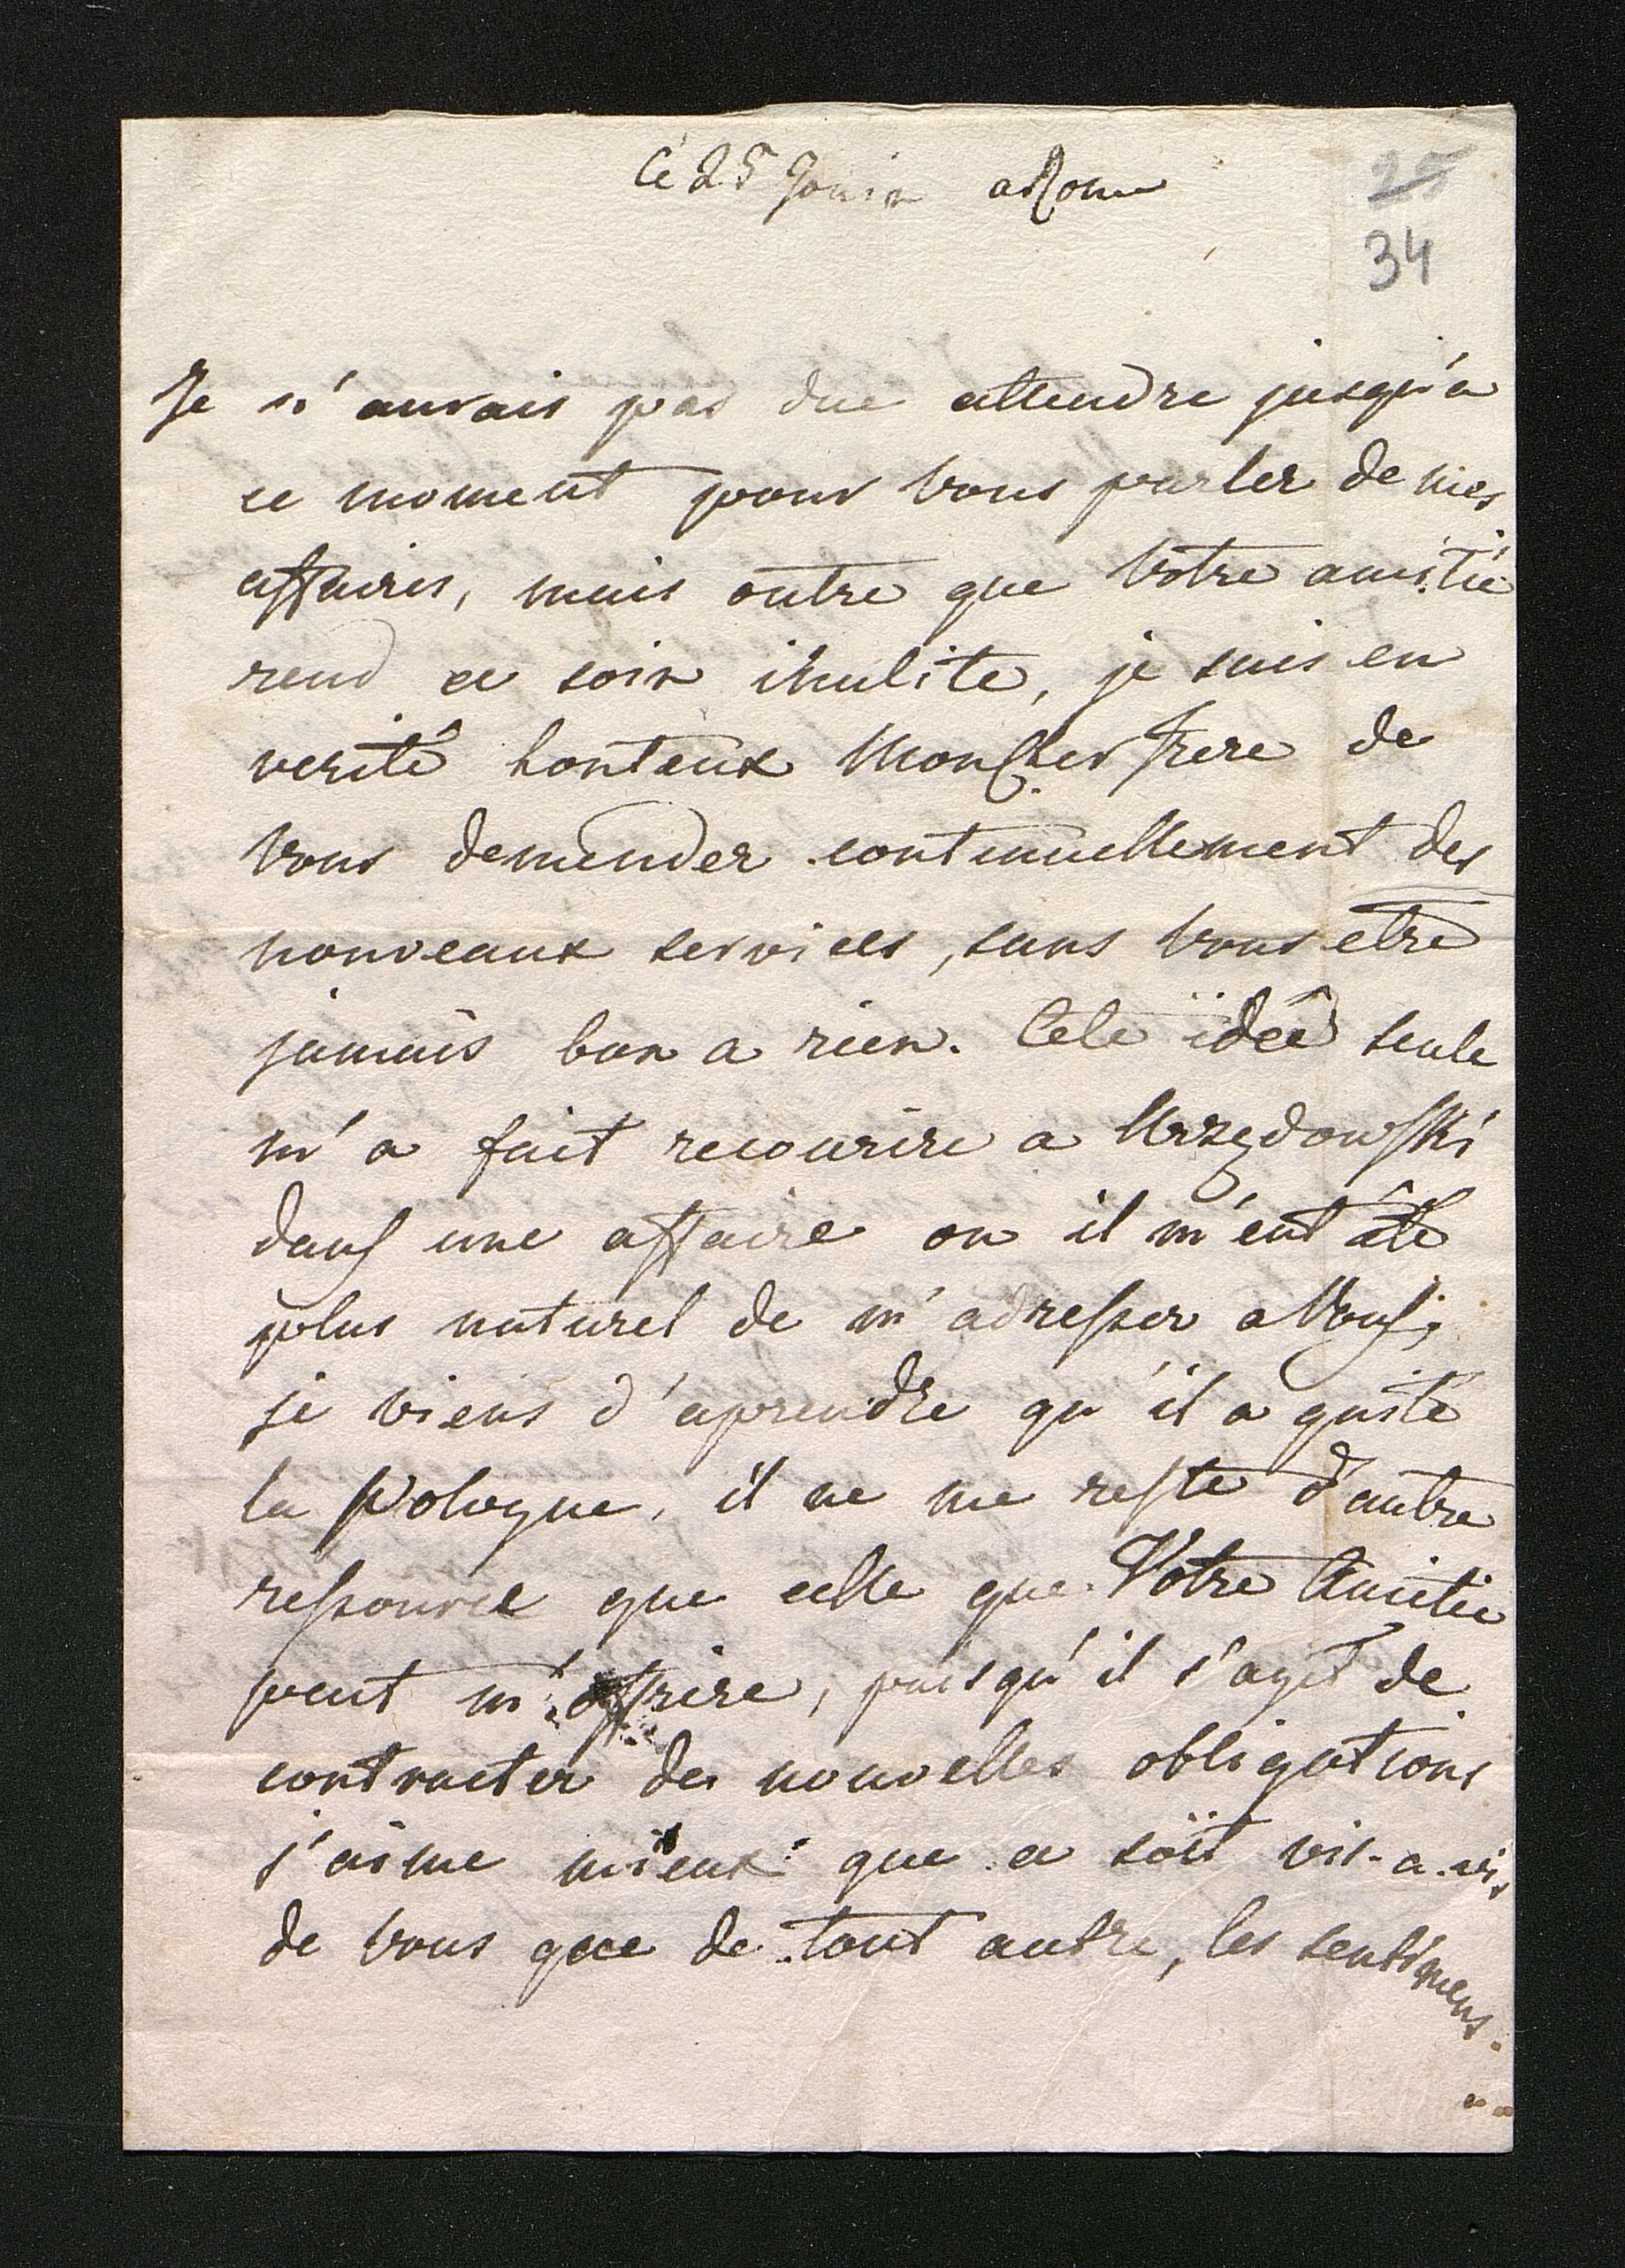 Ce 25 Jouin a Rome
25
34
Je n'aurais pas due attendre jusqu'a
ce moment pour vous parler de mes
affaires, mais outre que Votre amitié
rend ce soin inulite, je suis en
verité honteux Mon Cher frere de
vous demender continuellement des
nouveaux services, sans vous etre
jamais bon a rien. Cete ideé seule
m'a fait recourire a Urzędowski
dans une affaire ou il m'eut été
plus naturel de m'adresser a Vous;
je viens d'aprendre qu'il a quité
la Pologne, il ne me reste d'autre
ressource que celle que Votre Amitié
peut m'offrire, puisqu'il s'agit de
contracter des nouvelles obligations
j'aime mieux que ce soit vis-a-vis
de vous que de tout autre, les sentimens